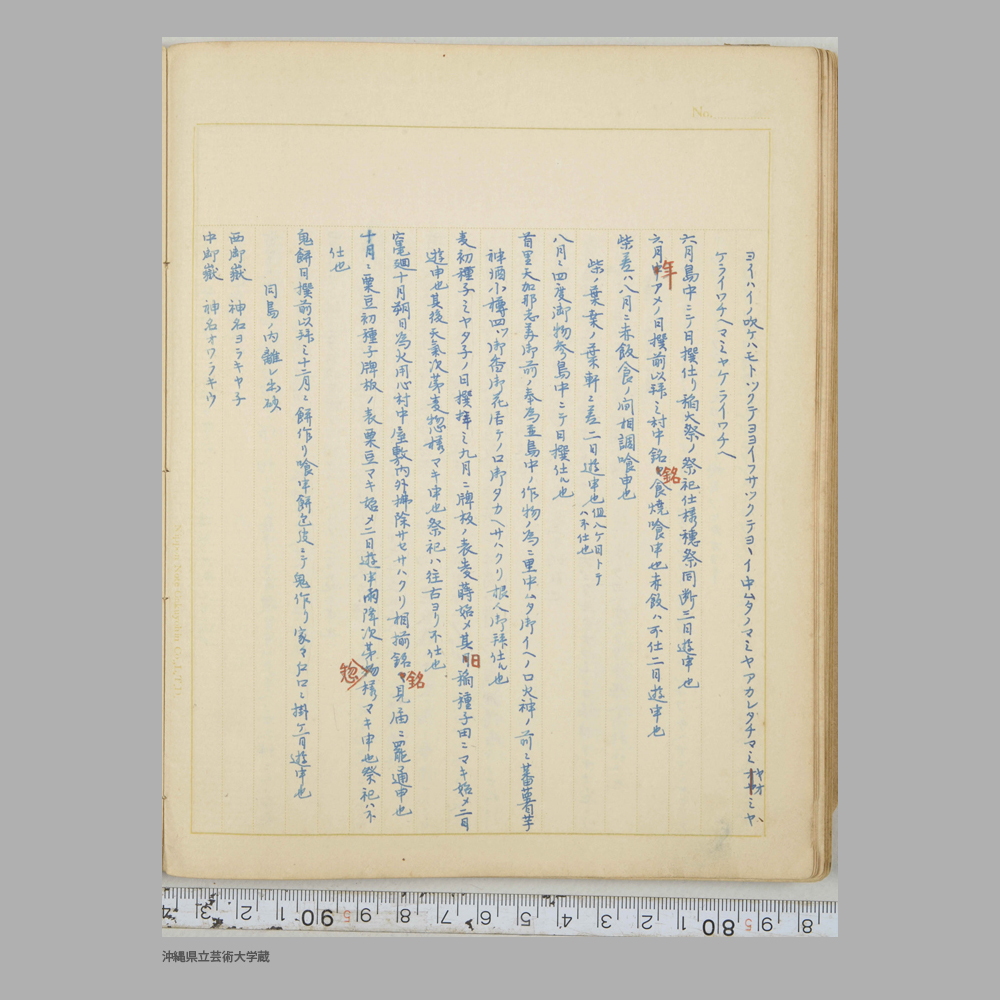 ヨイハイノ吹ケハモトツクテヨヨイフサツクテヨヽイ中ムタノマミヤアカレタチマミヤオミヤ
ケライワチヘマミヤケライワチヘ
六月島中ニテ日撰仕り稲大祭ノ祭祀仕様穂祭同断三日遊申也
六月年アメノ日撰前以拝ミ村中銘々食焼喰申也赤飯ハ不仕二日遊申也
銘
柴差ハ八月ニ赤飯食ノ間相調喰申也
柴ノ葉桑ノ葉軒ニ差二日遊申也但八ケ日トテ
ハ不仕也
八月ニ四度御物参島中ニテ日撰仕ル也
首里天加那志美御前ノ奉為並島中ノ作物ノ為ニ里中ムタ御イヘノロ火神ノ前ニ蕃薯芋
神酒小樽四ツ御香御花居テノロ御タカヘサハクリ根人御拝仕ル也
麦初種子ミヤタ子ノ日撰拝ミ九月ニ牌板ノ表麦蒔始メ其日稲種子田ニマキ始メ二日
遊申也其後天氣次第麦惣様マキ申也祭祀ハ往古ヨリ不仕也
竃廻十月朔日為火用心村中屋敷内外掃除サセサハクリ相揃銘々見届ニ罷通申也
銘
十月ニ粟豆初種子牌板ノ表粟豆マキ始メ二日遊申雨降次第惣様マキ申也祭祀ハ不
惣
仕也
鬼餅日撰前以拝ミ十二月ニ餅作り喰申餅包皮ニテ鬼作り家々ノ口ニ掛ケ一日遊申也
同島ノ内離レ出砂
西御嶽　神名ヨラキヤ子
中御嶽　神名オワラキウ
No.
沖縄県立芸術大学蔵